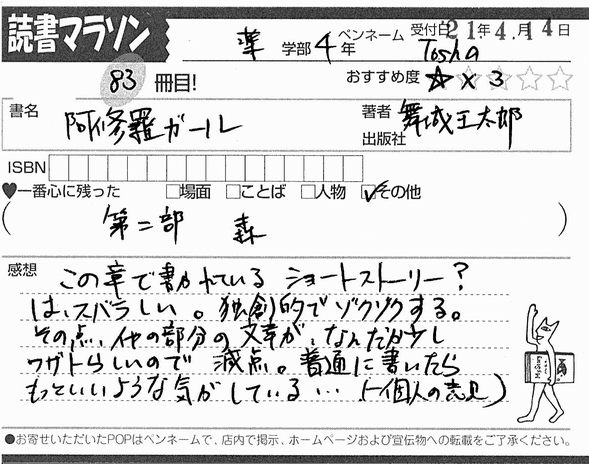 読書マラソン
薬 学部 4 年 ペンネーム Tosha 受付日 21年 4.月 14日
83 冊目!
おすすめ度 ★ × 3 ☆☆☆
書名 阿修羅ガール
著者 舞城王太郎
出版社
ISBN
♥一番心に残った □場面 □ことば □人物 ☑その他
( 第二部 森 )
感想 この章で書かれている ショートストーリー?
は、スバラしい。独創的でゾクゾクする。
その点、他の部分の文章が、なんだか少し
ワザトらしいので 減点。普通に書いたら
もっといいような気がしている… (一個人の意見)
●お寄せいただいたPOPはペンネームで、店内で掲示、ホームページおよび宣伝物への転載をご了承ください。